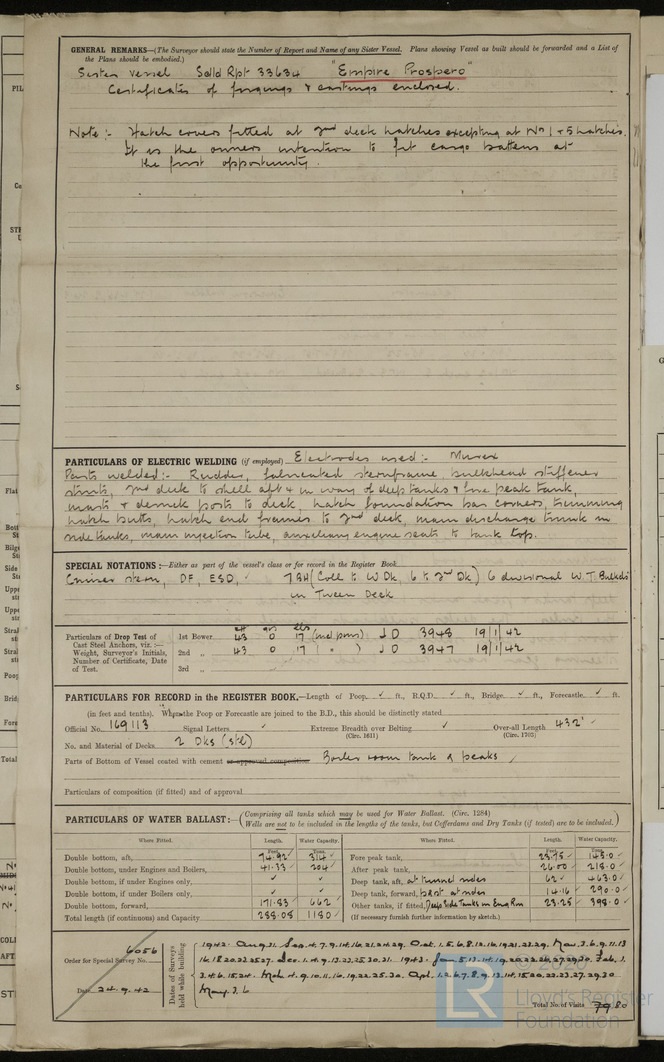 GENERAL REMARKS—(The Surveyor should state the Number of Report and Name of any Sister Vessel. Plans showing Vessel as built should be forwarded and a List of
the Plans should be embodied.)
Sister Vessel Sdld Rpt 33634 "Empire Prospero"
Certificates of forgings & castings enclosed.
Note :- Hatch covers fitted at 2nd deck hatches excepting at Nos 1 & 5 hatches.
It is the owners intention to fit cargo battens at
the first opportunity.
PARTICULARS OF ELECTRIC WELDING (if employed) Electrodes used :- Murex
Parts welded :- Rudder, fabricated sternframe, bulkhead stiffener
struts, 2nd deck to shell aft & in way of deep tanks & fore peak tank,
masts & derrick posts to deck, hatch foundation bar corners, trimming
hatch butts, hatch end frames to 2nd deck, main discharge trunk in
side tanks, main injection tube, auxiliary engine seats to tank top.
SPECIAL NOTATIONS:—Either as part of the vessel's class or for record in the Register Book
Cruiser stern, DF, ESD, 7 BH (Coll to W Dk, 6 to 2nd Dk) 6 divisional W.T. Bulkds
in Tween Deck
Particulars of Drop Test of
Cast Steel Anchors, viz.:—
Weight, Surveyor's Initials,
Number of Certificate, Date
of Test.
cwt qrs lbs
1st Bower 43 0 17 (incl pins) J D 3948 19/1/42
2nd „ 43 0 17 ( " ) J D 3947 19/1/42
3rd „
PARTICULARS FOR RECORD in the REGISTER BOOK.—Length of Poop ✓ ft., R.Q.D. ✓ ft., Bridge ✓ ft., Forecastle ✓ ft.
(in feet and tenths). When the Poop or Forecastle are joined to the B.D., this should be distinctly stated
Official No. 169113 Signal Letters ✓ Extreme Breadth over Belting ✓ Over-all Length 432' ✓
(Circ. 1611) (Circ. 1705)
No. and Material of Decks 2 Dks (stl)
Parts of Bottom of Vessel coated with cement or approved composition Boiler room tank & peaks
Particulars of composition (if fitted) and of approval
PARTICULARS OF WATER BALLAST:—(Comprising all tanks which may be used for Water Ballast. (Circ. 1284)
Wells are not to be included in the lengths of the tanks, but Cofferdams and Dry Tanks (if tested) are to be included.)
Where Fitted. Length. Water Capacity. Where Fitted. Length. Water Capacity.
Feet. Tons. Feet. Tons.
Double bottom, aft, 74.92 ✓ 314 ✓ Fore peak tank, 23.75 ✓ 148.0 ✓
Double bottom, under Engines and Boilers, 41.33 ✓ 204 ✓ After peak tank, 26.00 ✓ 218.0 ✓
Double bottom, if under Engines only, ✓ ✓ Deep tank, aft, at tunnel sides 62 ✓ 463.0 ✓
Double bottom, if under Boilers only, ✓ ✓ Deep tank, forward, p & st. at sides 14.16 ✓ 290.0 ✓
Double bottom, forward, 171.83 ✓ 662 ✓ Other tanks, if fitted, Deep Side Tanks in Eng Rm 23.25 ✓ 398.0 ✓
Total length (if continuous) and Capacity 288.08 1180 ✓ (If necessary furnish further information by sketch.)
Order for Special Survey No. 6056
Date 24.9.42
Dates of Surveys held while building
1942 Aug. 31 Sep. 4.7.9.14.16.21.24.29. Oct. 1.5.6.8.12.16.19.21.23.29. Nov. 3.6.9.11.13
16.18.20.23.25.27. Dec. 1.4.9.13.22.25.30.31. 1943 Jan. 5.13.14.19.20.22.26.27.29.30. Feb. 1.
3.4.6.15.24. Mch. 4.9.10.11.16.19.22.25.30. Apl. 1.2.6.7.8.9.13.14.15.20.22.23.27.29.30
May. 3.6
Total No. of Visits 79 80
2020
LR
Lloyd's Register
Foundation